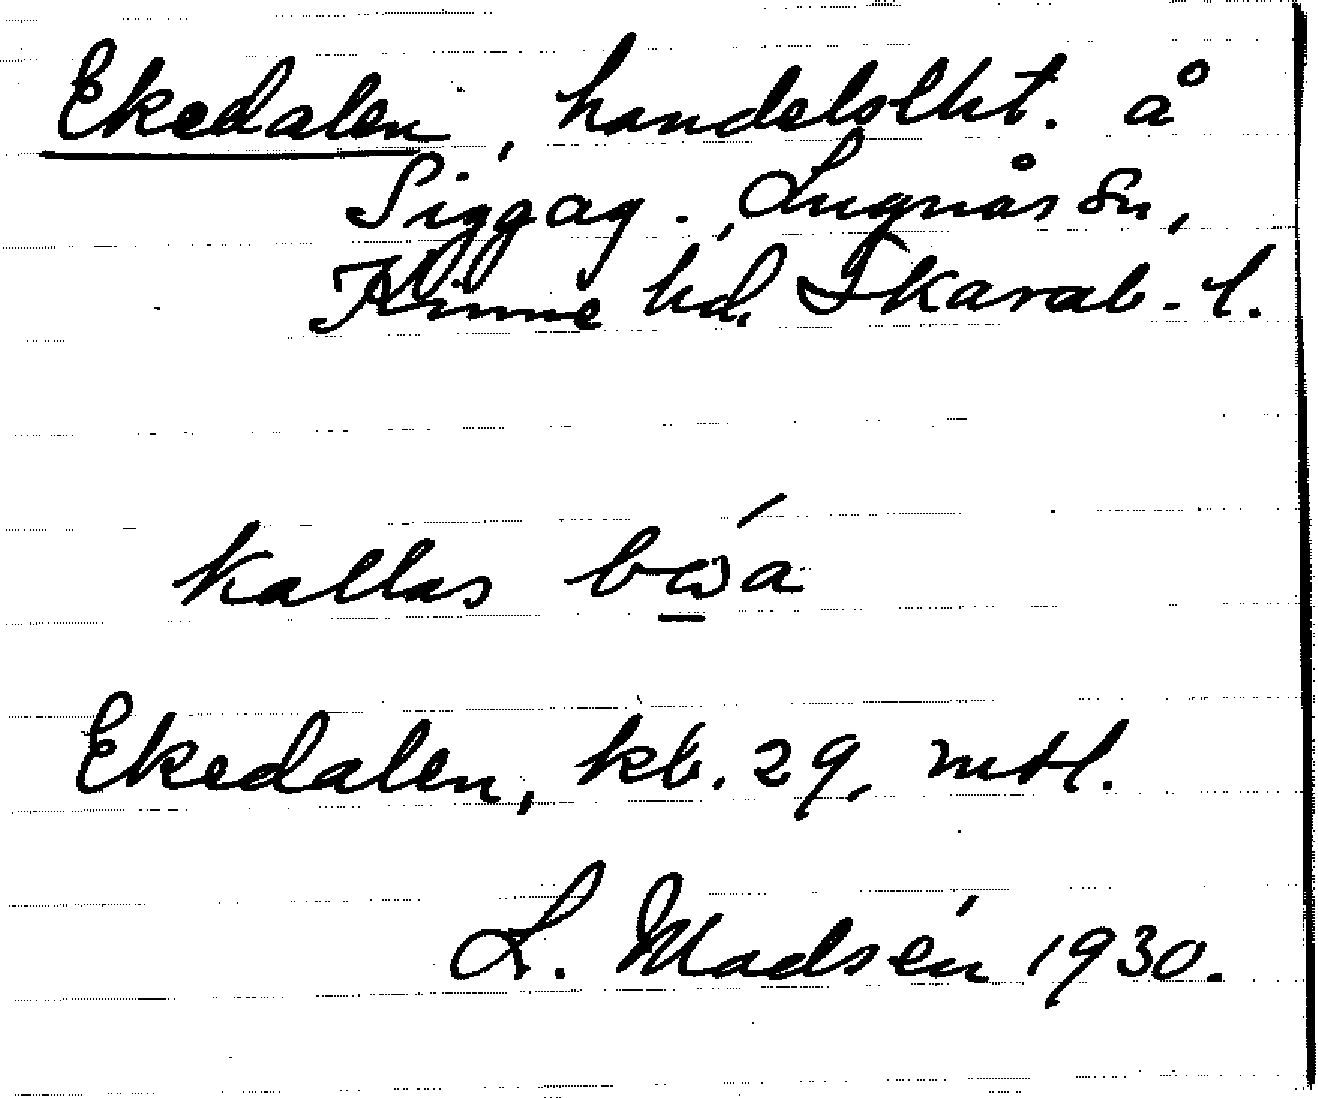 Ekedalen, handelslht. å
Siggag., Lugnås sn,
Kinne hd, Skarab. l.
kallas
Ekedalen, kb. 29, mtl.
L. Madsén 1930.